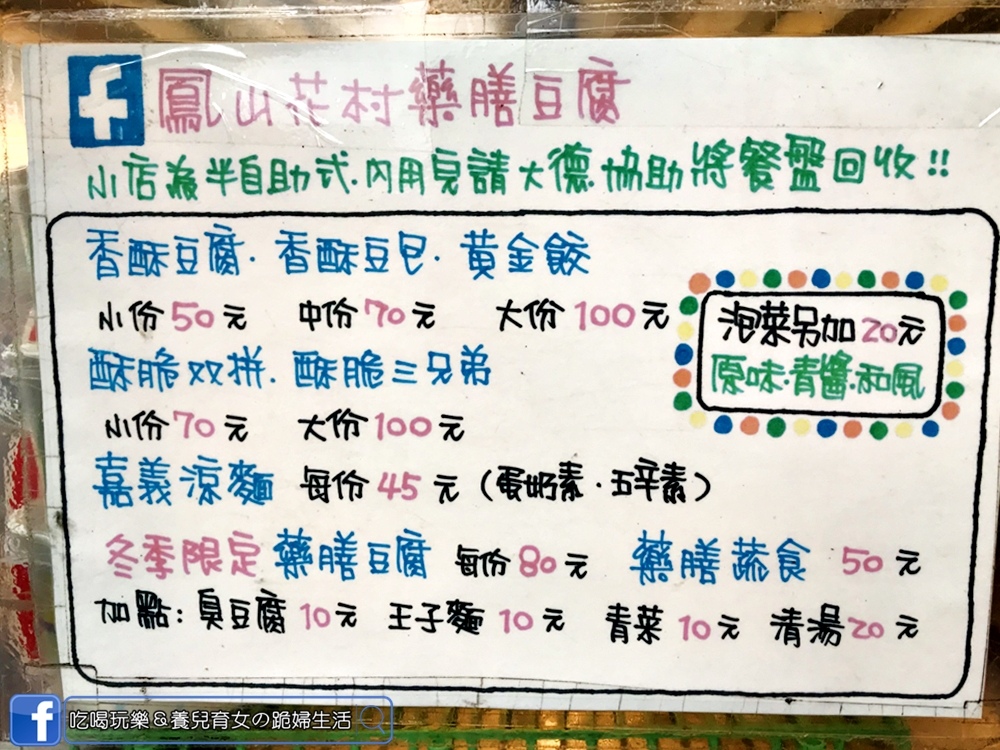 f 鳳山花村藥膳豆腐
小店為半自助式.內用完請大德.協助將餐盤回收!!
香酥豆腐.香酥豆包.黃金餃
小份50元 中份70元 大份100元
泡菜另加20元
原味.青醬.和風
酥脆双拼.酥脆三兄弟
小份70元 大份100元
嘉義涼麵 每份45元(蛋奶素.五辛素)
冬季限定 藥膳豆腐 每份80元 藥膳蔬食 50元
加點:臭豆腐10元 王子麵10元 青菜10元 清湯20元
f 吃喝玩樂&養兒育女の跪婦生活